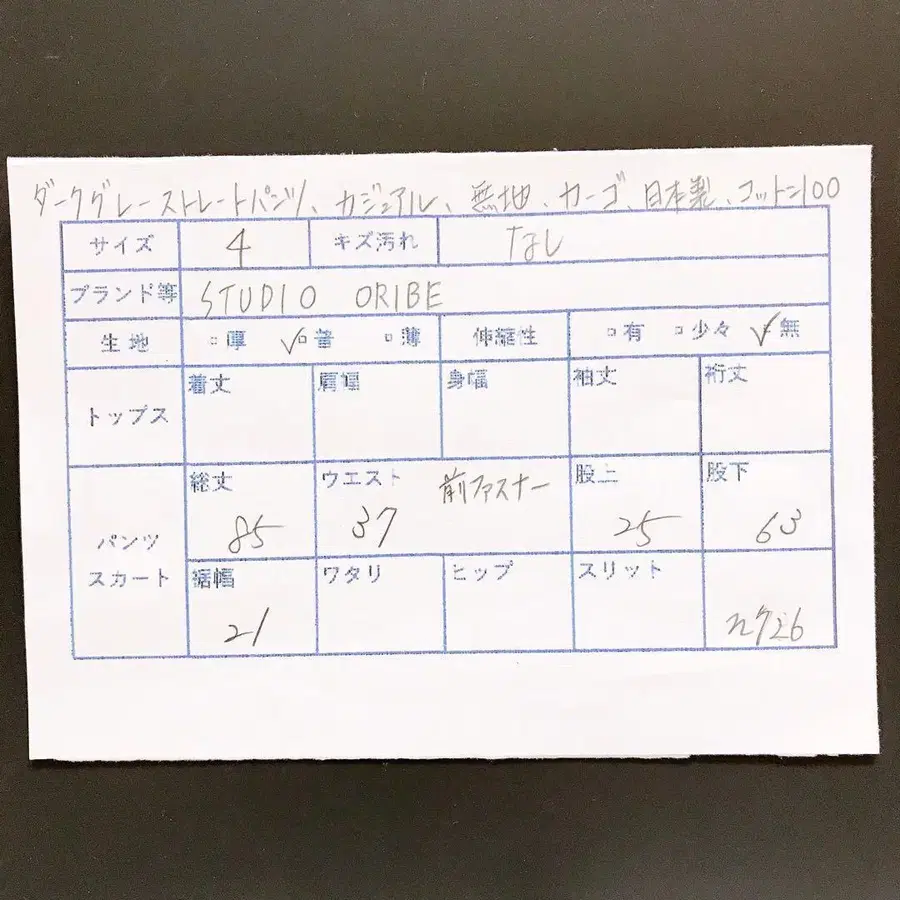 ダークグレーストレートパンツ、カジュアル、無地、カーゴ、日本製、コットン100
サイズ 4 キズ汚れ なし
ブランド等 STUDIO ORIBE
生地 □厚 ✓□普 □薄 伸縮性 □有 □少々 ✓□無
トップス 着丈 肩幅 身幅 袖丈 裄丈
パンツ スカート
総丈 ウエスト 前ファスナー 股上 股下
85 37 25 63
裾幅 ワタリ ヒップ スリット
21